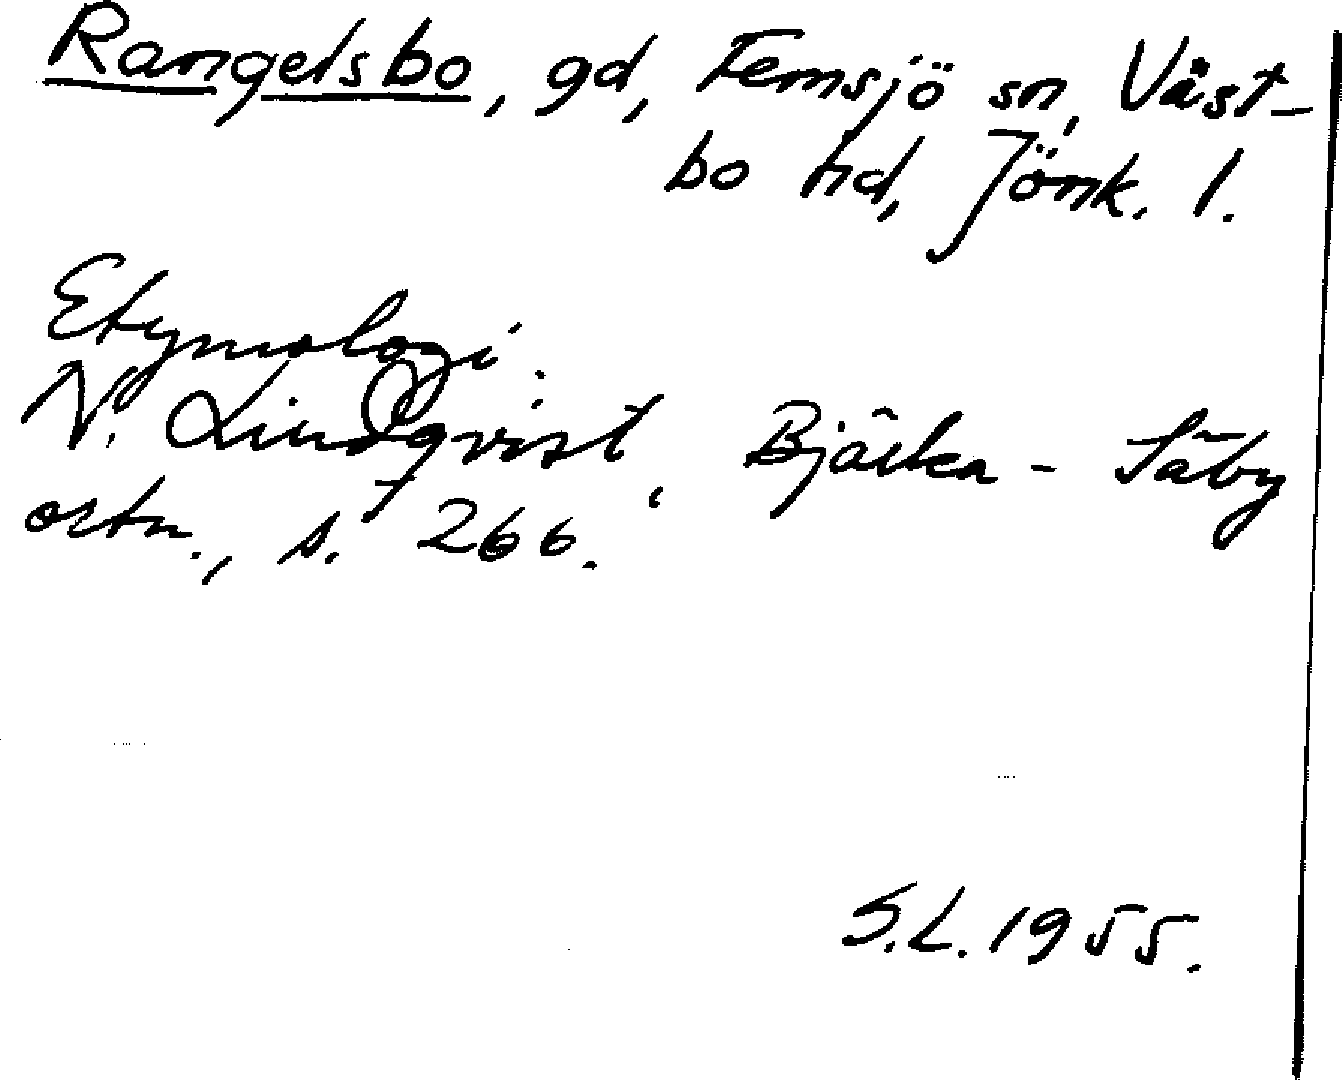 Rangelsbo, gd, Femsjö sn, Väst-
bo hd, Jönk. l.
Etymologi.
N. Lindqvist, Bjärka - Säby
ortn., s. 266.
S.L. 1955.